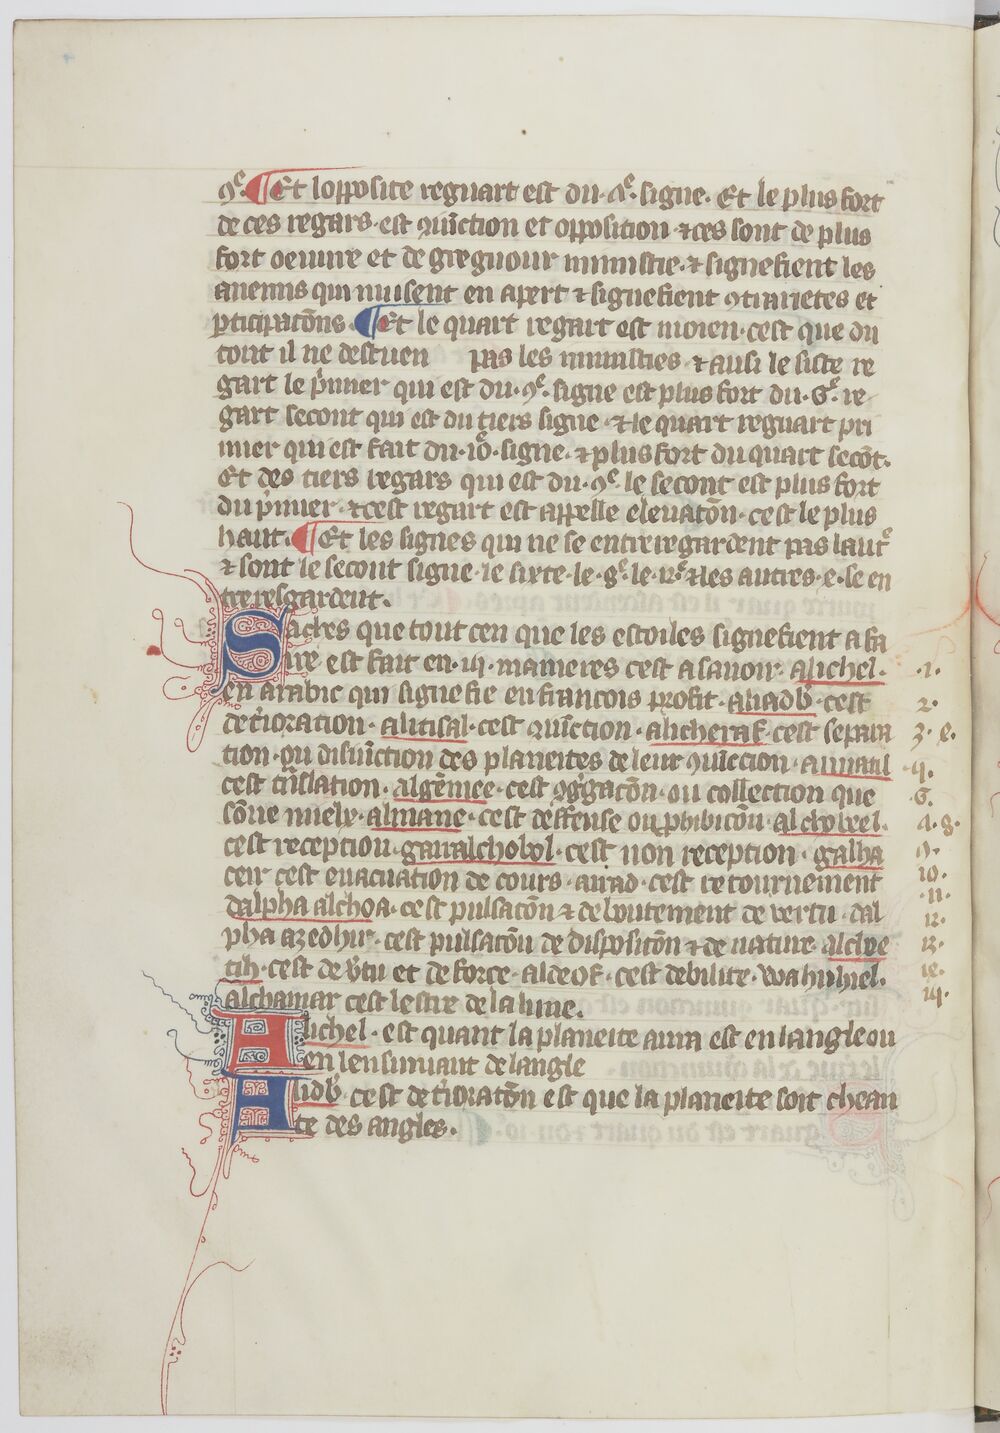 9ͤ. ¶ Et lopposite reguart est du .4ͤ. signe. Et le plus fort
de ces regars est 9iu̅ction et opposition ⁊ ces sont de plus
fort oeuure et de greguour ministie. ⁊ signefient les
anemis qui nuisent en apert ⁊ signefient 9trarietes et
p̲ticipaco̅ns. ¶ Et le quart regart est moien. cest que du
tout il ne destruen pas les ministies. ⁊ ausi le siste re
gart le p̍mier qui est du .9ͤ. signe est plus fort du .6ͤ. re
gart secont qui est du tiers signe. ⁊ le quart reguart pri
mier qui est fait du .10ͤ. signe. ⁊ plus fort du quart seco̅t.
Et des tiers regars qui est du .9ͤ. le secont est plus fort
du p̍mier. ⁊ cest regart est appelle eleuato̅n. cest le plus
haut. ¶ Et les signes qui ne se entreregardent pas laut͛
⁊ sont le secont signe. le sixte. le .8ͤ. le .12ͤ. ⁊ les autres .e. se en
treresgardent.
Saches que tout cen que les estoiles signefient a fa
ire est fait en .14. manieres cest a sauoir. alichel.
en arabic qui signefie en francois profit. aliadb̅. cest
det̍ioration. alitisal. cest 9iu̅ction. alicheraf. cest separa
tion. ou disiu̅ction des planeites de leur 9iu̅ection. annaal
cest tn̅slation. alge̅mee. cest 9g̍gaco̅n. ou collection que
so̅ne miely. almane. cest deffense ou p̲hibico̅n. alchobeel.
cest reception. gairalchobol. cest non reception. galha
ceir cest euacuation de cours. airad. cest retournement
dalpha alchoa. cest pulsaco̅n ⁊ deboutement de vertu. dal
pha azedhir. cest pulsaco̅n de disposito̅n ⁊ de nature. alchoe
tih. cest de v͛tu et de force. aldeof. cest debilite. wahuhiel.
alchamar cest lestre de la lune.
.1.
2.
3. e.
.4.
.6.
.8.
9.
10.
.11.
12.
13.
14.
Alichel. est quant la planeite aura est en langle ou
en lensuiuant de langle
Alidb̅. cest det̍iorato̅n est que la planeite soit chean
te des angles.